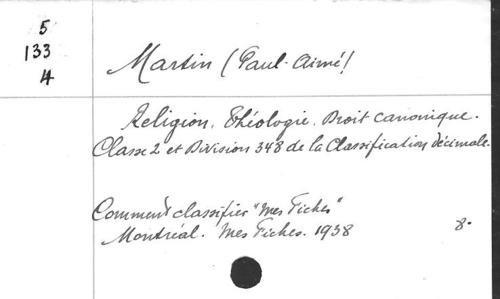 5
133
4
Martin (Paul-Aimé)
Religion. Théologie. Droit canonique.
Classe 2 et Division 348 de la Classification décimale.
Comment classifier "Mes Fiches"
Montréal. Mes Fiches. 1938
8°